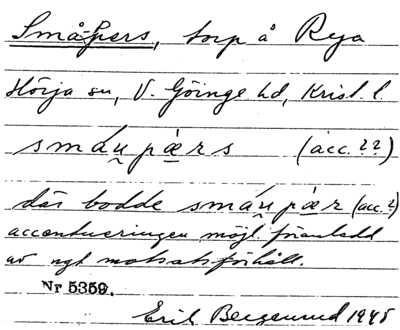 Små-Pers, torp å Reja
Hörja sn, V. Göinge hd, Krist. l.
smáu̯pæ̀rs (acc. ??)
där bodde smáu̯pæ̀r (acc. ?)
accentueringen möjl. föranledd
av ngt motsatsförhåll.
Nr 5359.
Erik Bergenund 1945